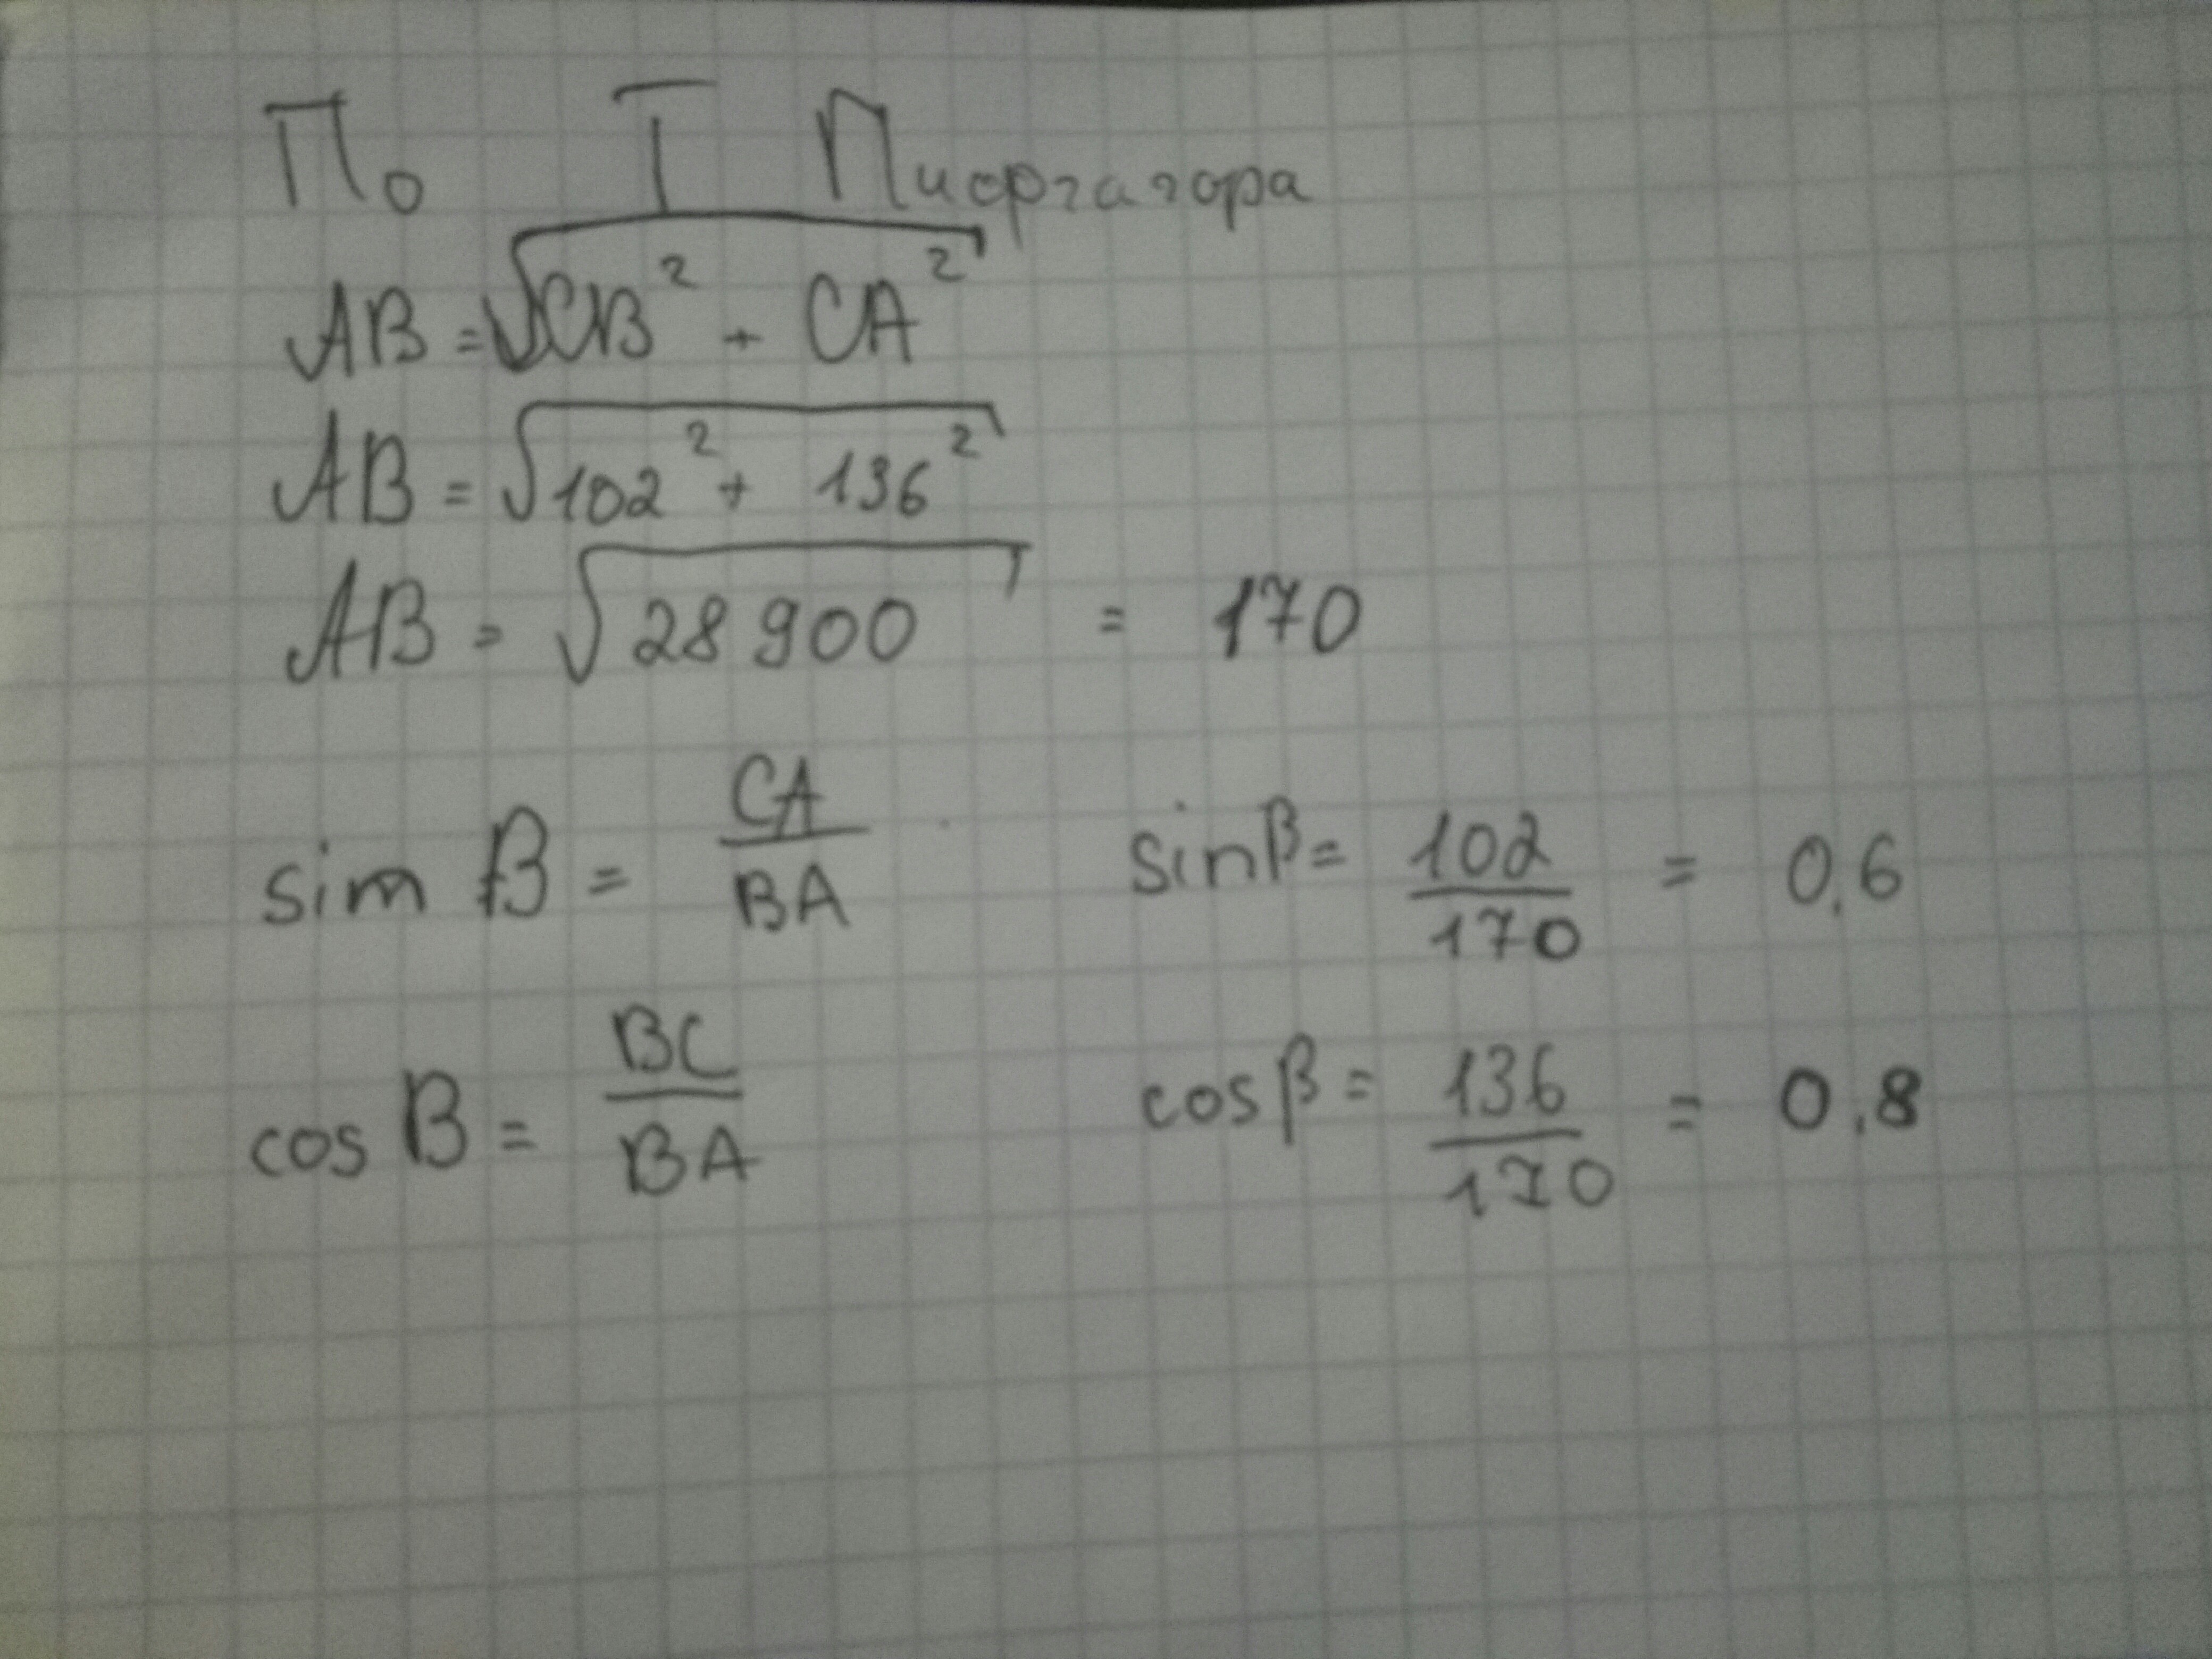 По Т Пиоргагора
AB = √CB² + CA²
AB = √102² + 136²
AB = √28900 = 170
sin B = CA/BA sinβ = 102/170 = 0,6
cos B = BC/BA cosβ = 136/170 = 0,8